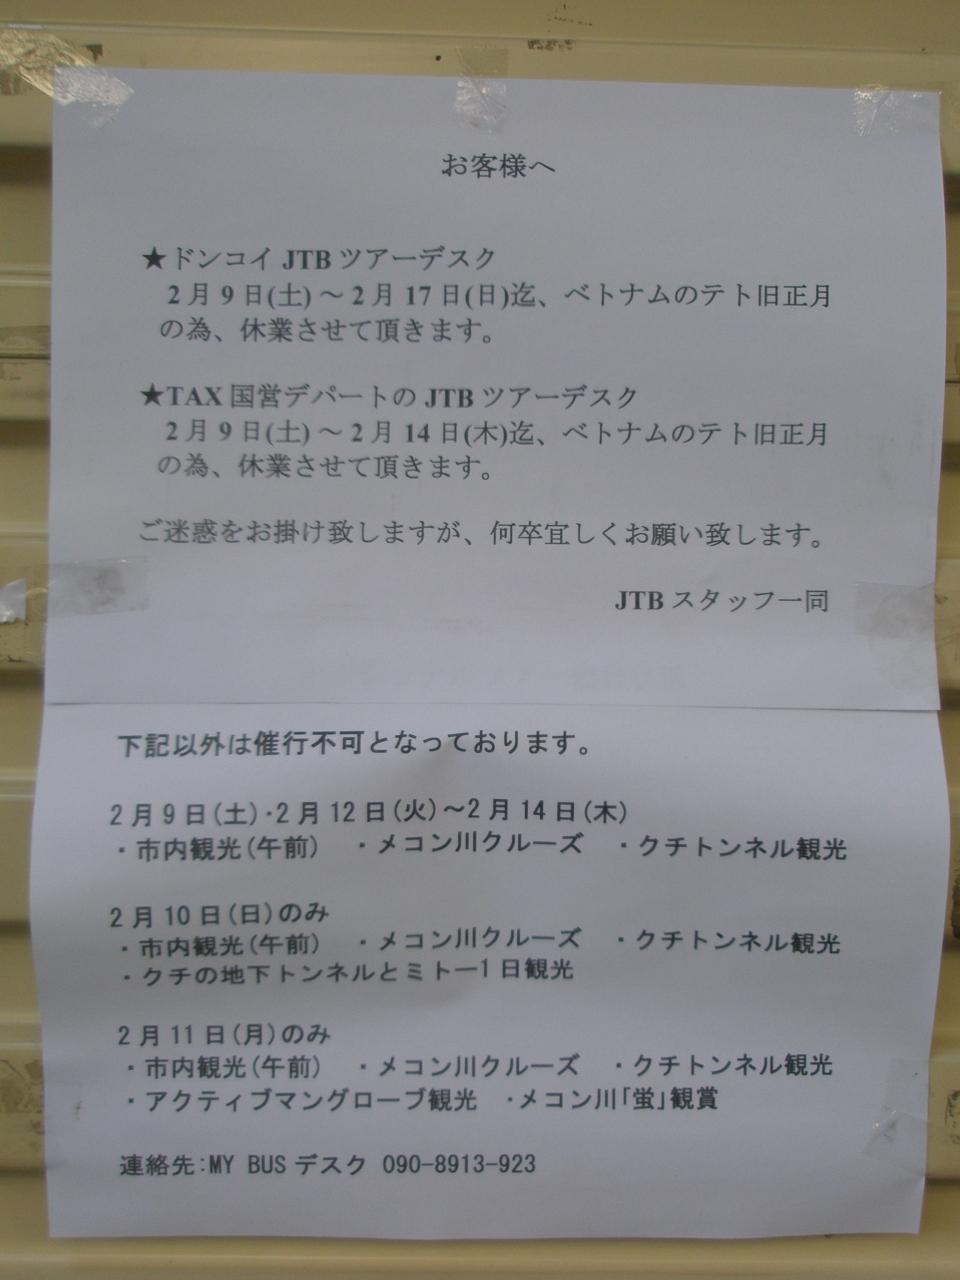 お客様へ
★ドンコイ JTB ツアーデスク
2月9日(土)~2月17日(日)迄、ベトナムのテト旧正月
の為、休業させて頂きます。
★TAX 国営デパートの JTB ツアーデスク
2月9日(土)~2月14日(木)迄、ベトナムのテト旧正月
の為、休業させて頂きます。
ご迷惑をお掛け致しますが、何卒宜しくお願い致します。
JTB スタッフ一同
下記以外は催行不可となっております。
2月9日(土)・2月12日(火)~2月14日(木)
・市内観光(午前) ・メコン川クルーズ ・クチトンネル観光
2月10日(日)のみ
・市内観光(午前) ・メコン川クルーズ ・クチトンネル観光
・クチの地下トンネルとミトー1日観光
2月11日(月)のみ
・市内観光(午前) ・メコン川クルーズ ・クチトンネル観光
・アクティブマングローブ観光 ・メコン川「蛍」観賞
連絡先:MY BUS デスク 090-8913-923